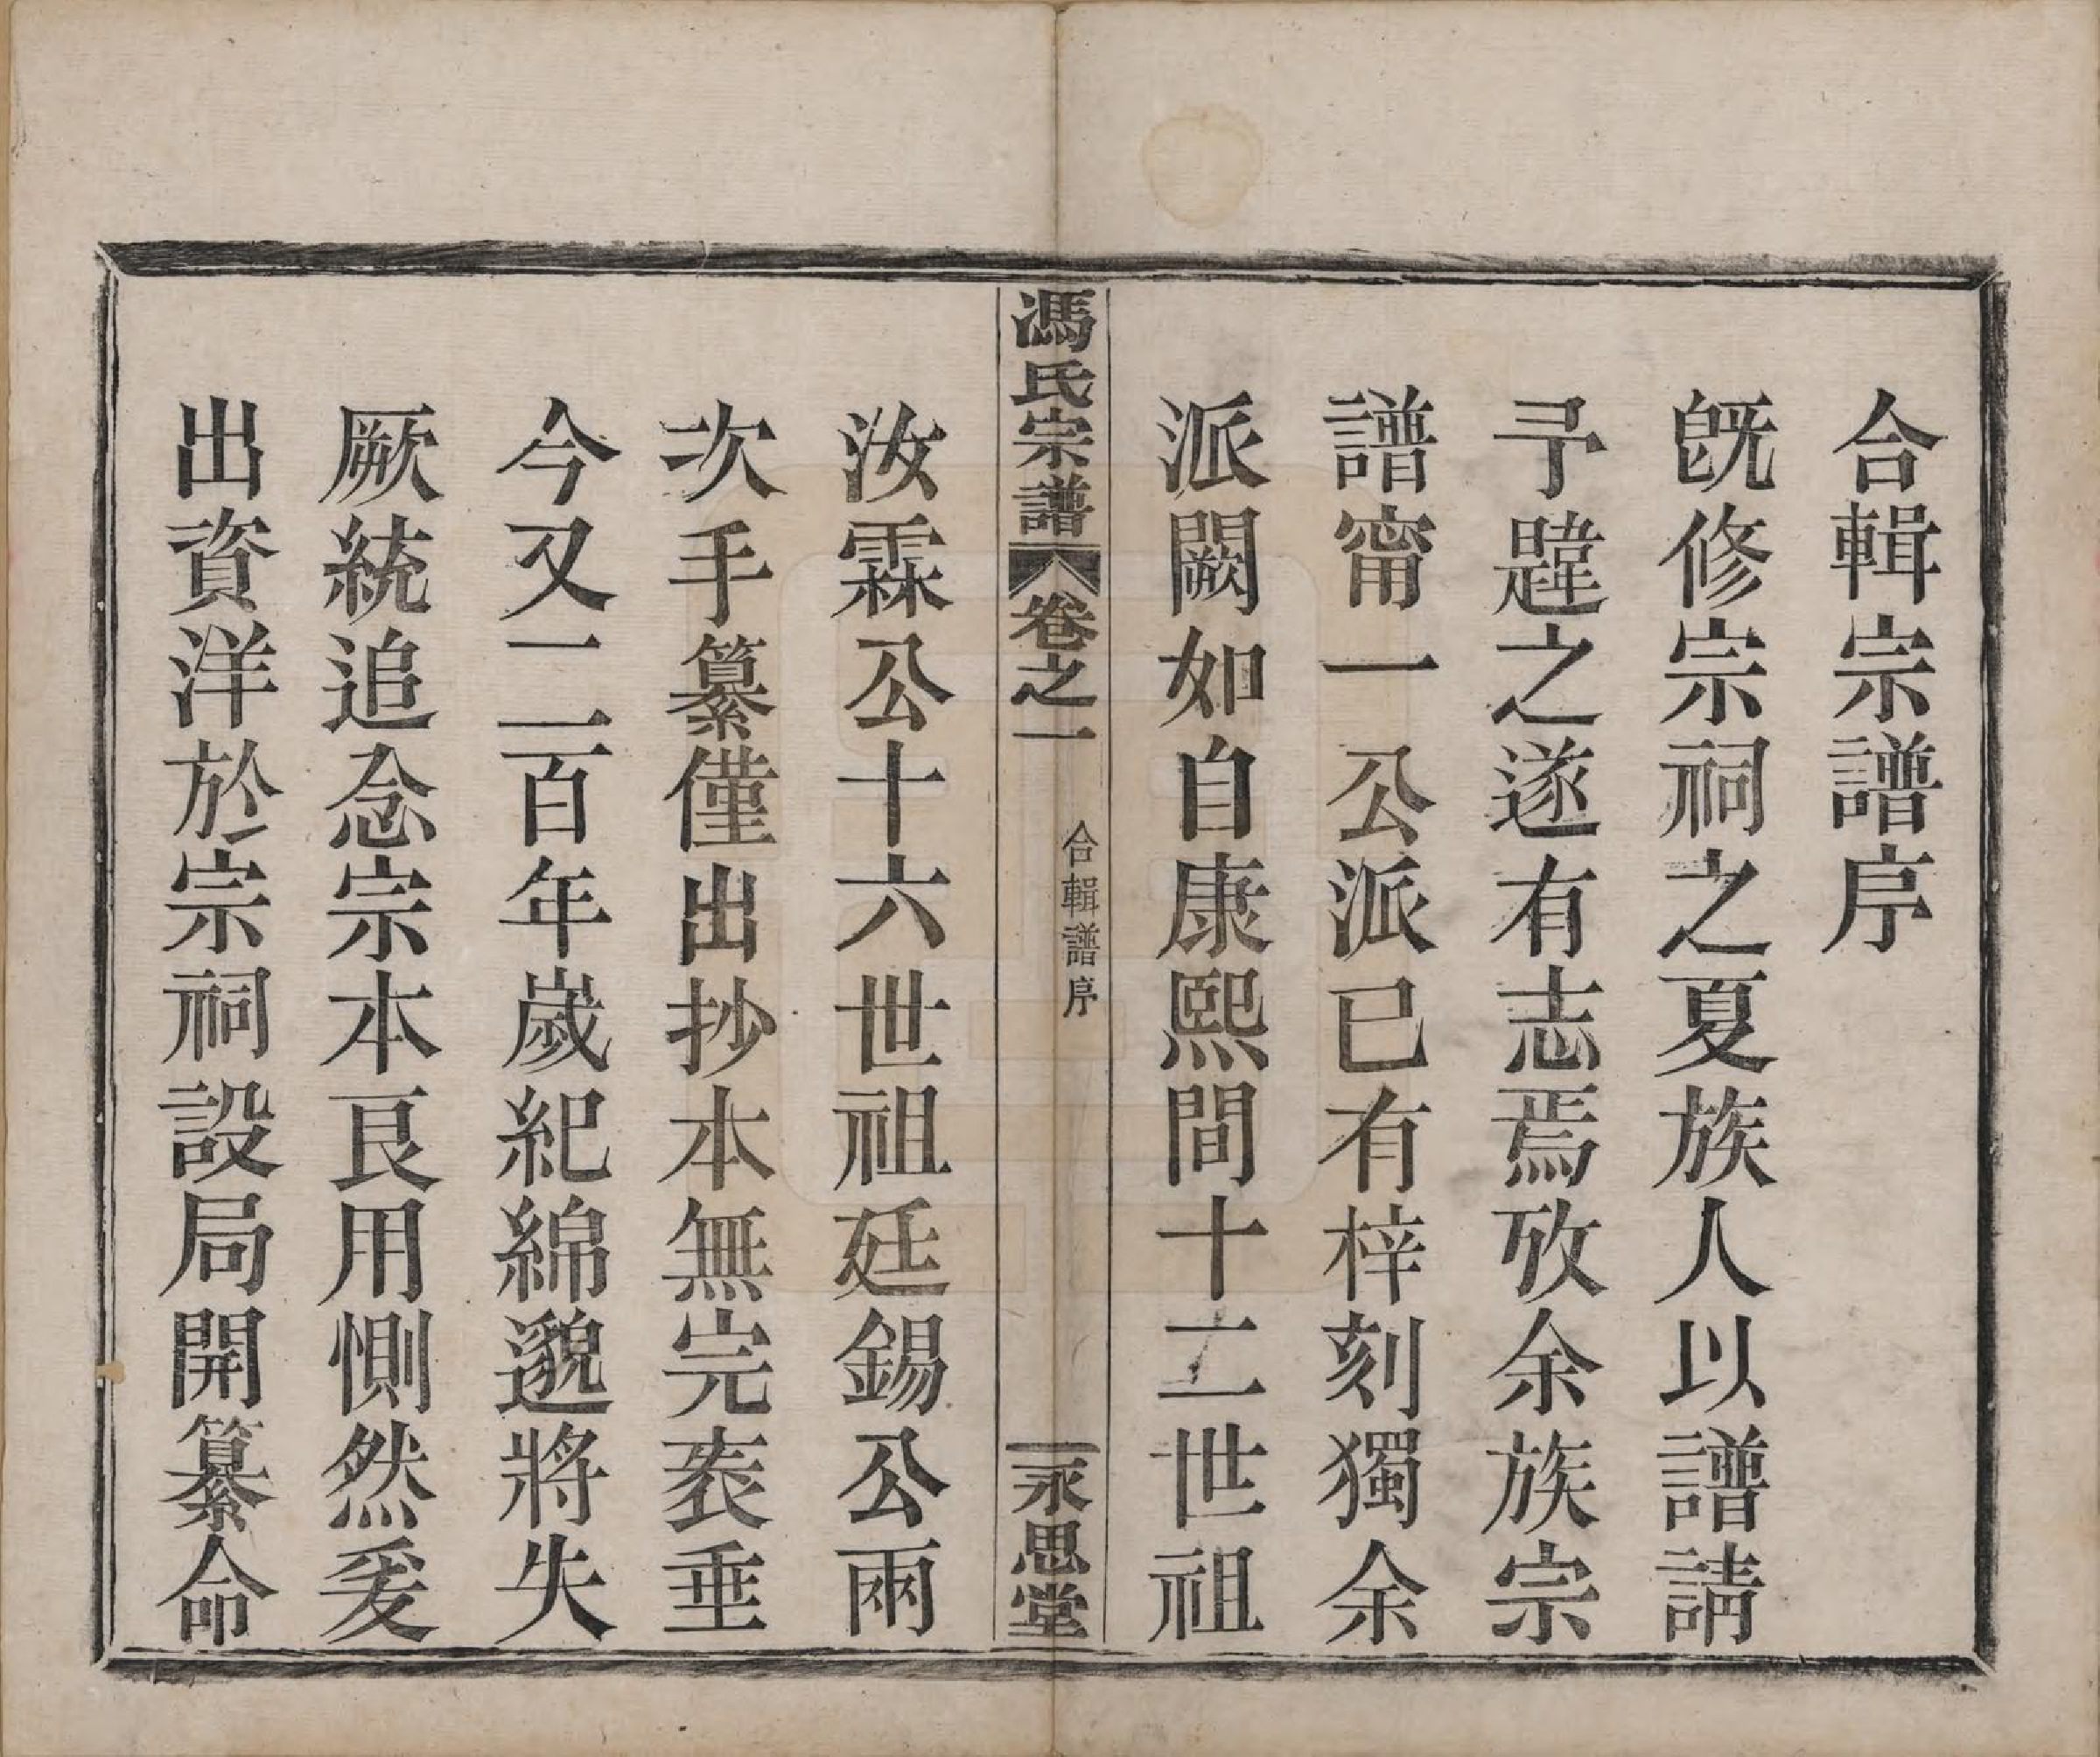 合輯宗譜序
旣修宗祠之夏族人以譜請
予韙之遂有志焉攷余族宗
譜甯一公派已有梓刻獨余
派闕如自康熙間十二世祖
馮氏宗譜 卷之一 合輯譜序 永思堂
汝霖公十六世祖廷錫公兩
次手纂僅出抄本無完袠垂
今又二百年歲紀綿邈將失
厥統追念宗本良用惻然爰
出資洋於宗祠設局開纂命